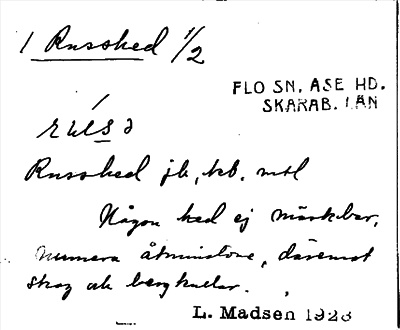 1 Russhed 1/2
FLO SN. ÅSE HD.
SKARAB. LÄN
Russhed jb, kb. mtl
Någon hed ej märkbar,
numera åtminstone, däremot
skog och bergkullar.
L. Madsen 1926